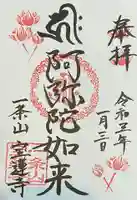 奉拝
令和五年
一月三日
ह्रीः
阿弥陀如来
一条山
宝蓮寺